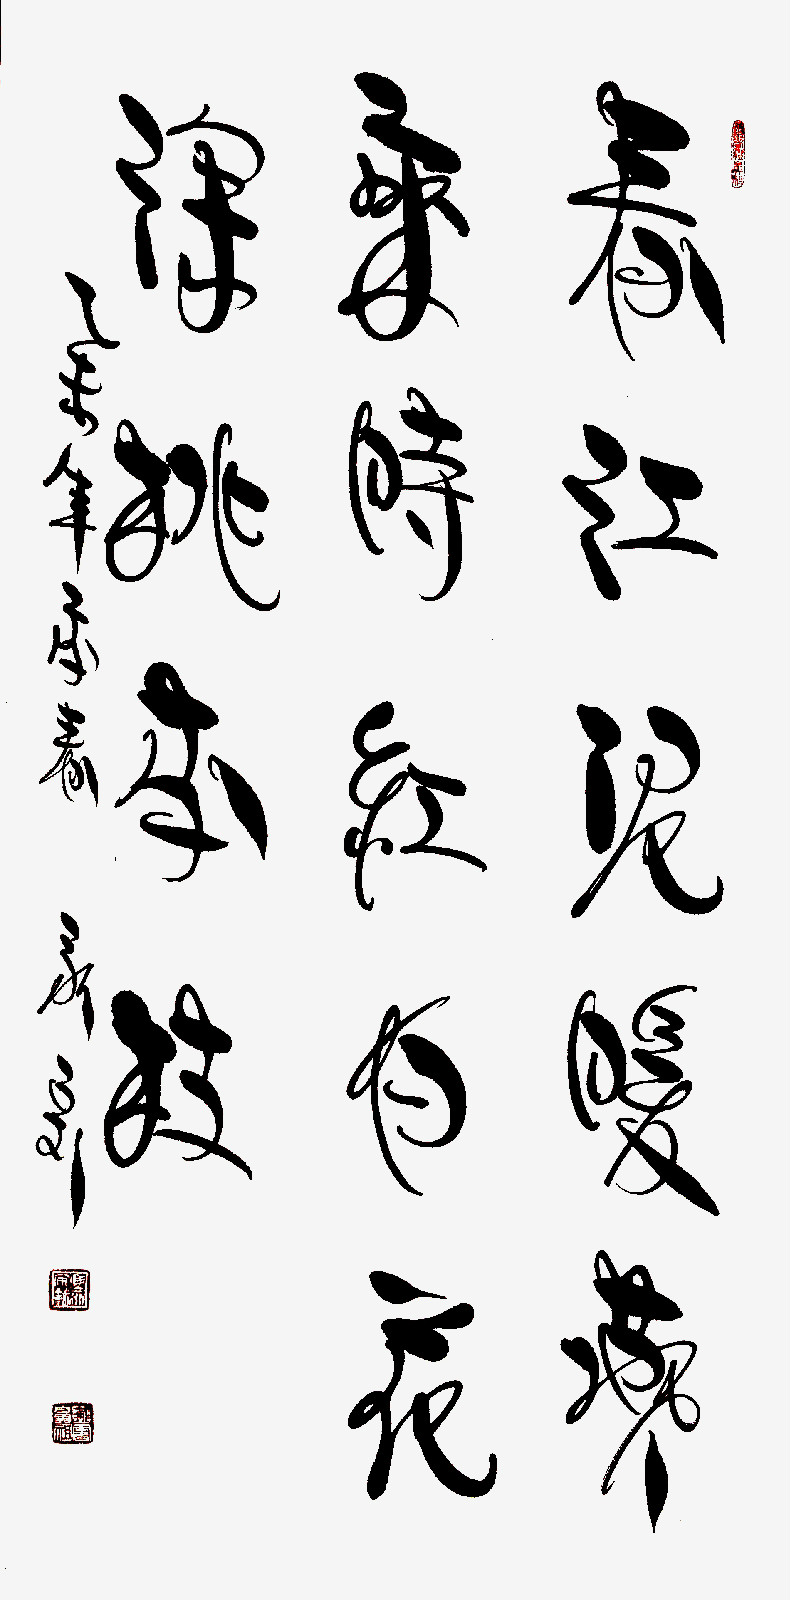 春江泥暖燕
乘時紅有花
深桃李枝
乙未年季春